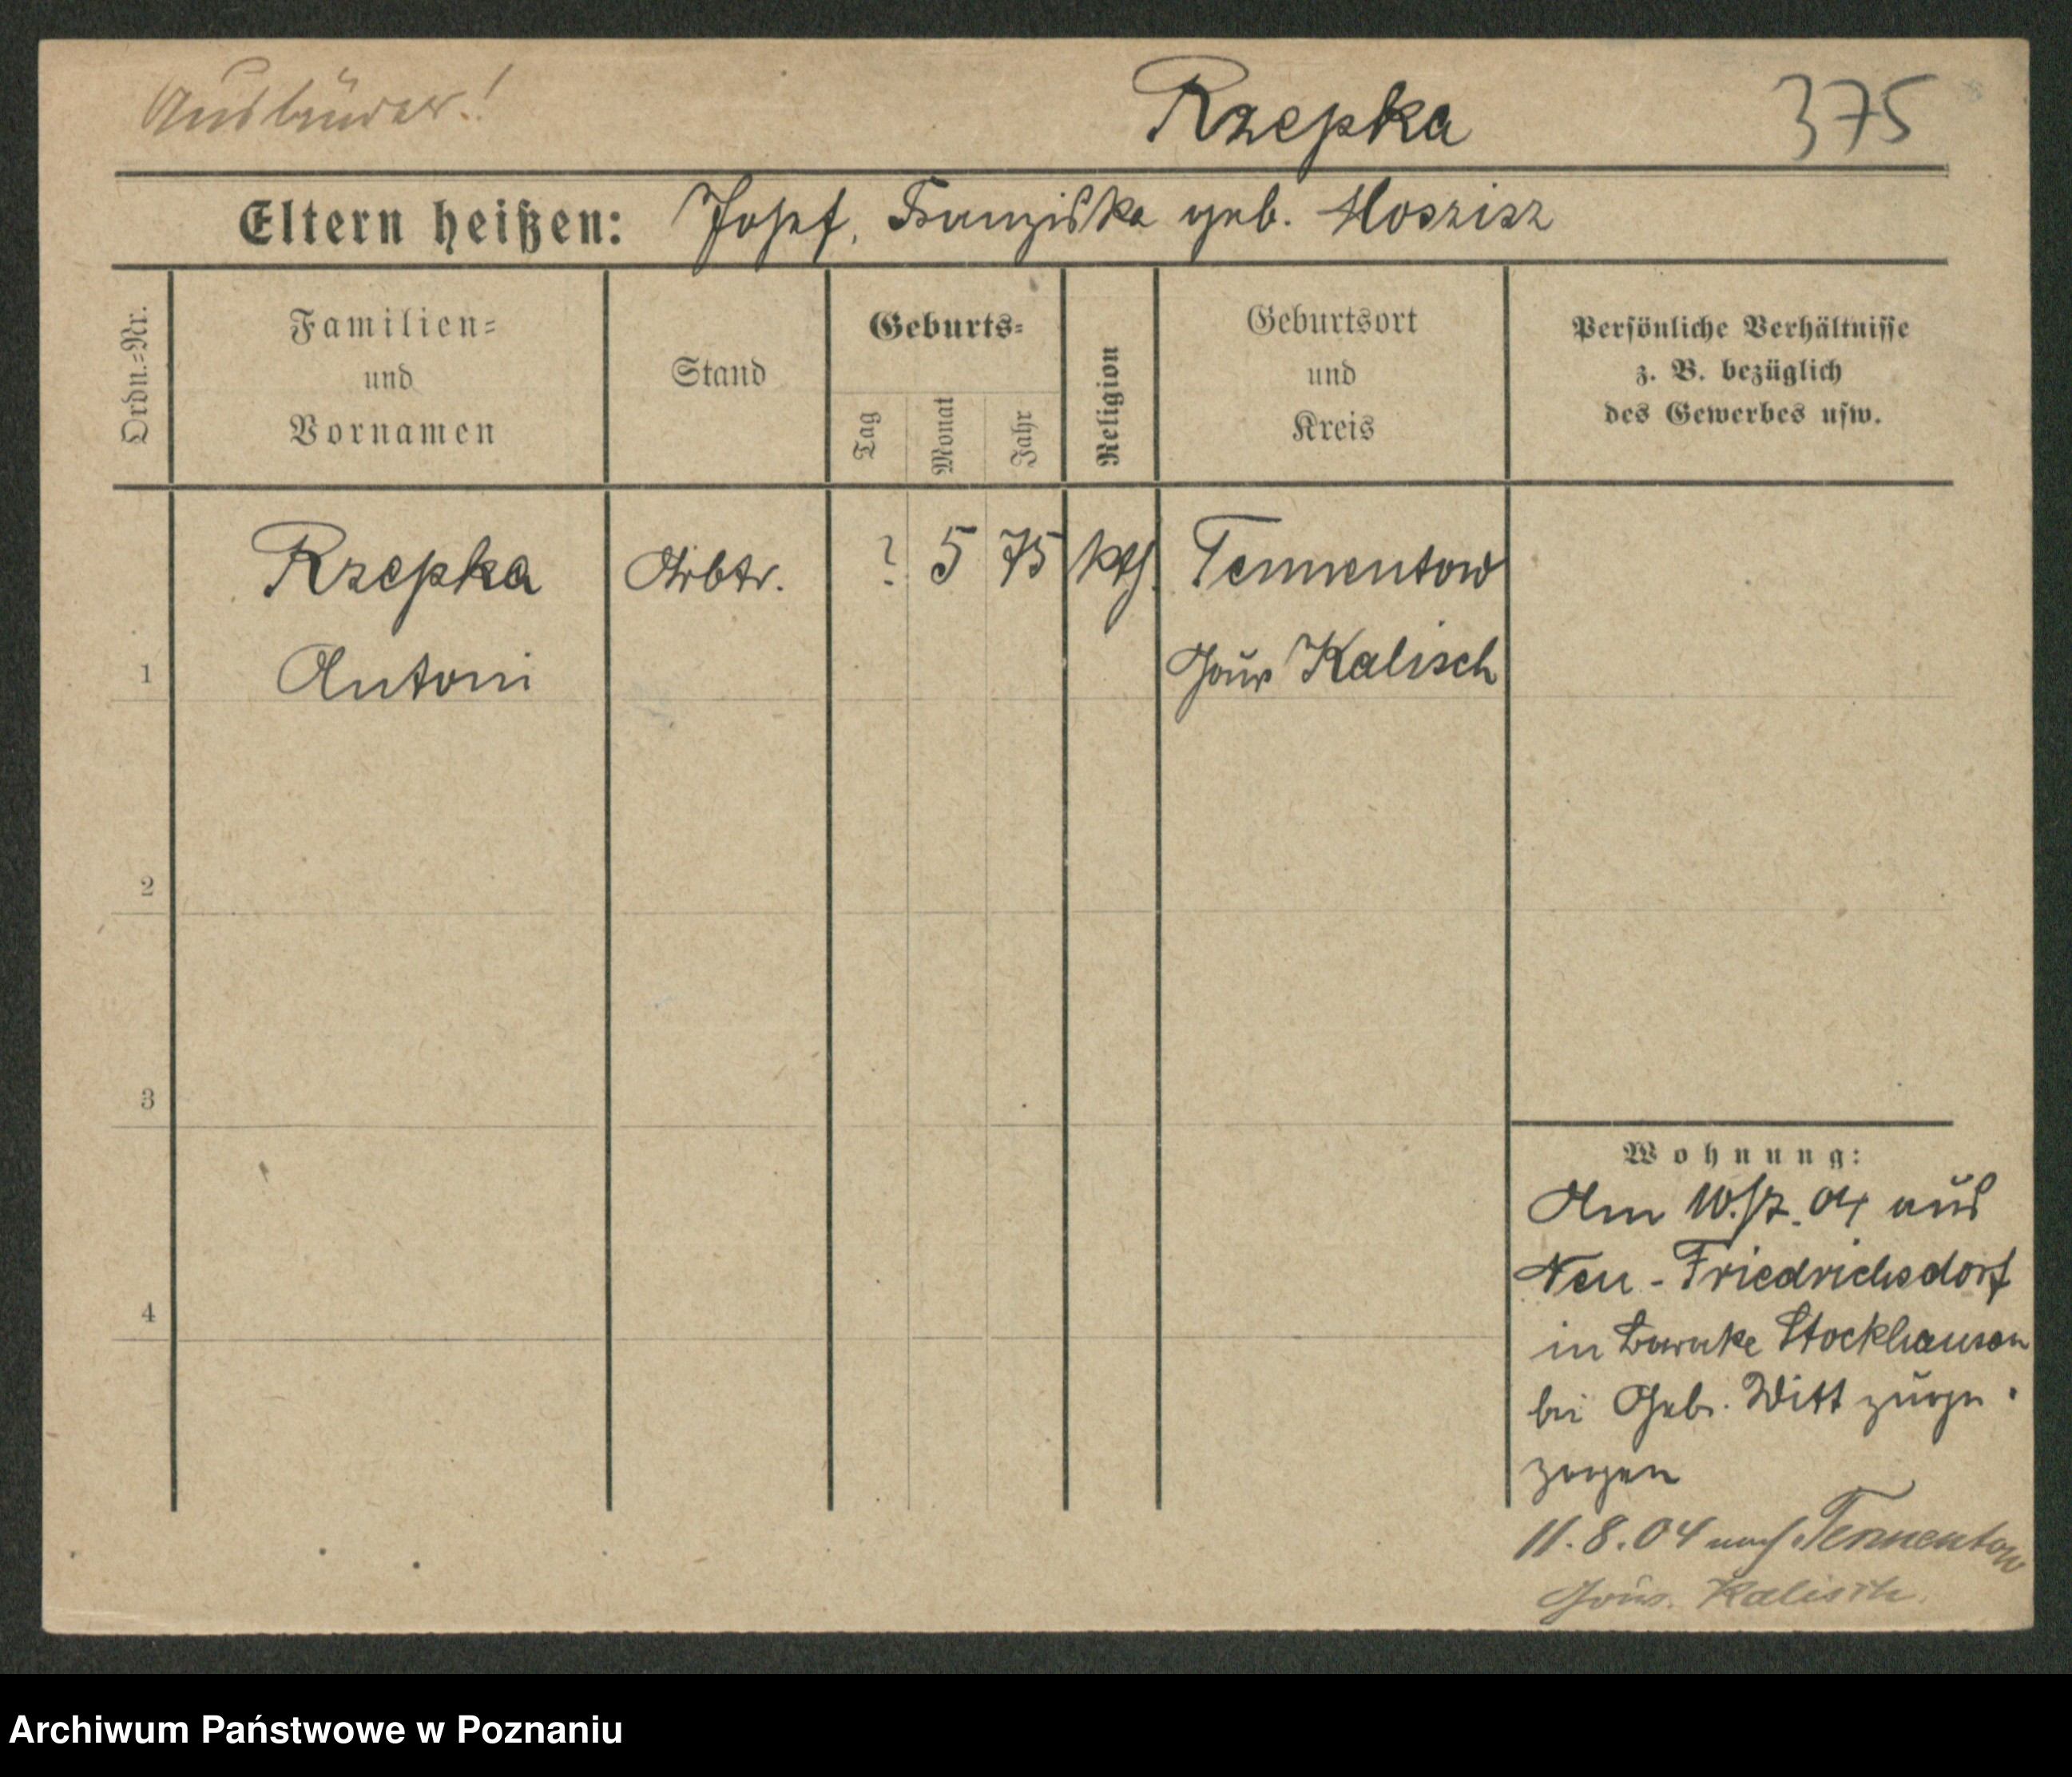 Ausländer!
Rzepka 375
Eltern heißen: Josef, Franziska geb. Moszisz
Ordn.=Nr.
Familien=
und
Vornamen
Stand
Geburts=
Tag
Monat
Jahr
Religion
Geburtsort
und
Kreis
Persönliche Verhältnisse
z. B. bezüglich
des Gewerbes usw.
Rzepka Arbtr. ? 5 75 kth. Temmentow
1 Antoni Gouv Kalisch
2
3
4
Wohnung:
Am 04 aus
Neu-Friedrichsdorf
in Barake Stockhausen
bei Geb. Witt zuge-
zogen
11.8.04 nach Temmentow
Gouv. Kalisch.
Archiwum Państwowe w Poznaniu